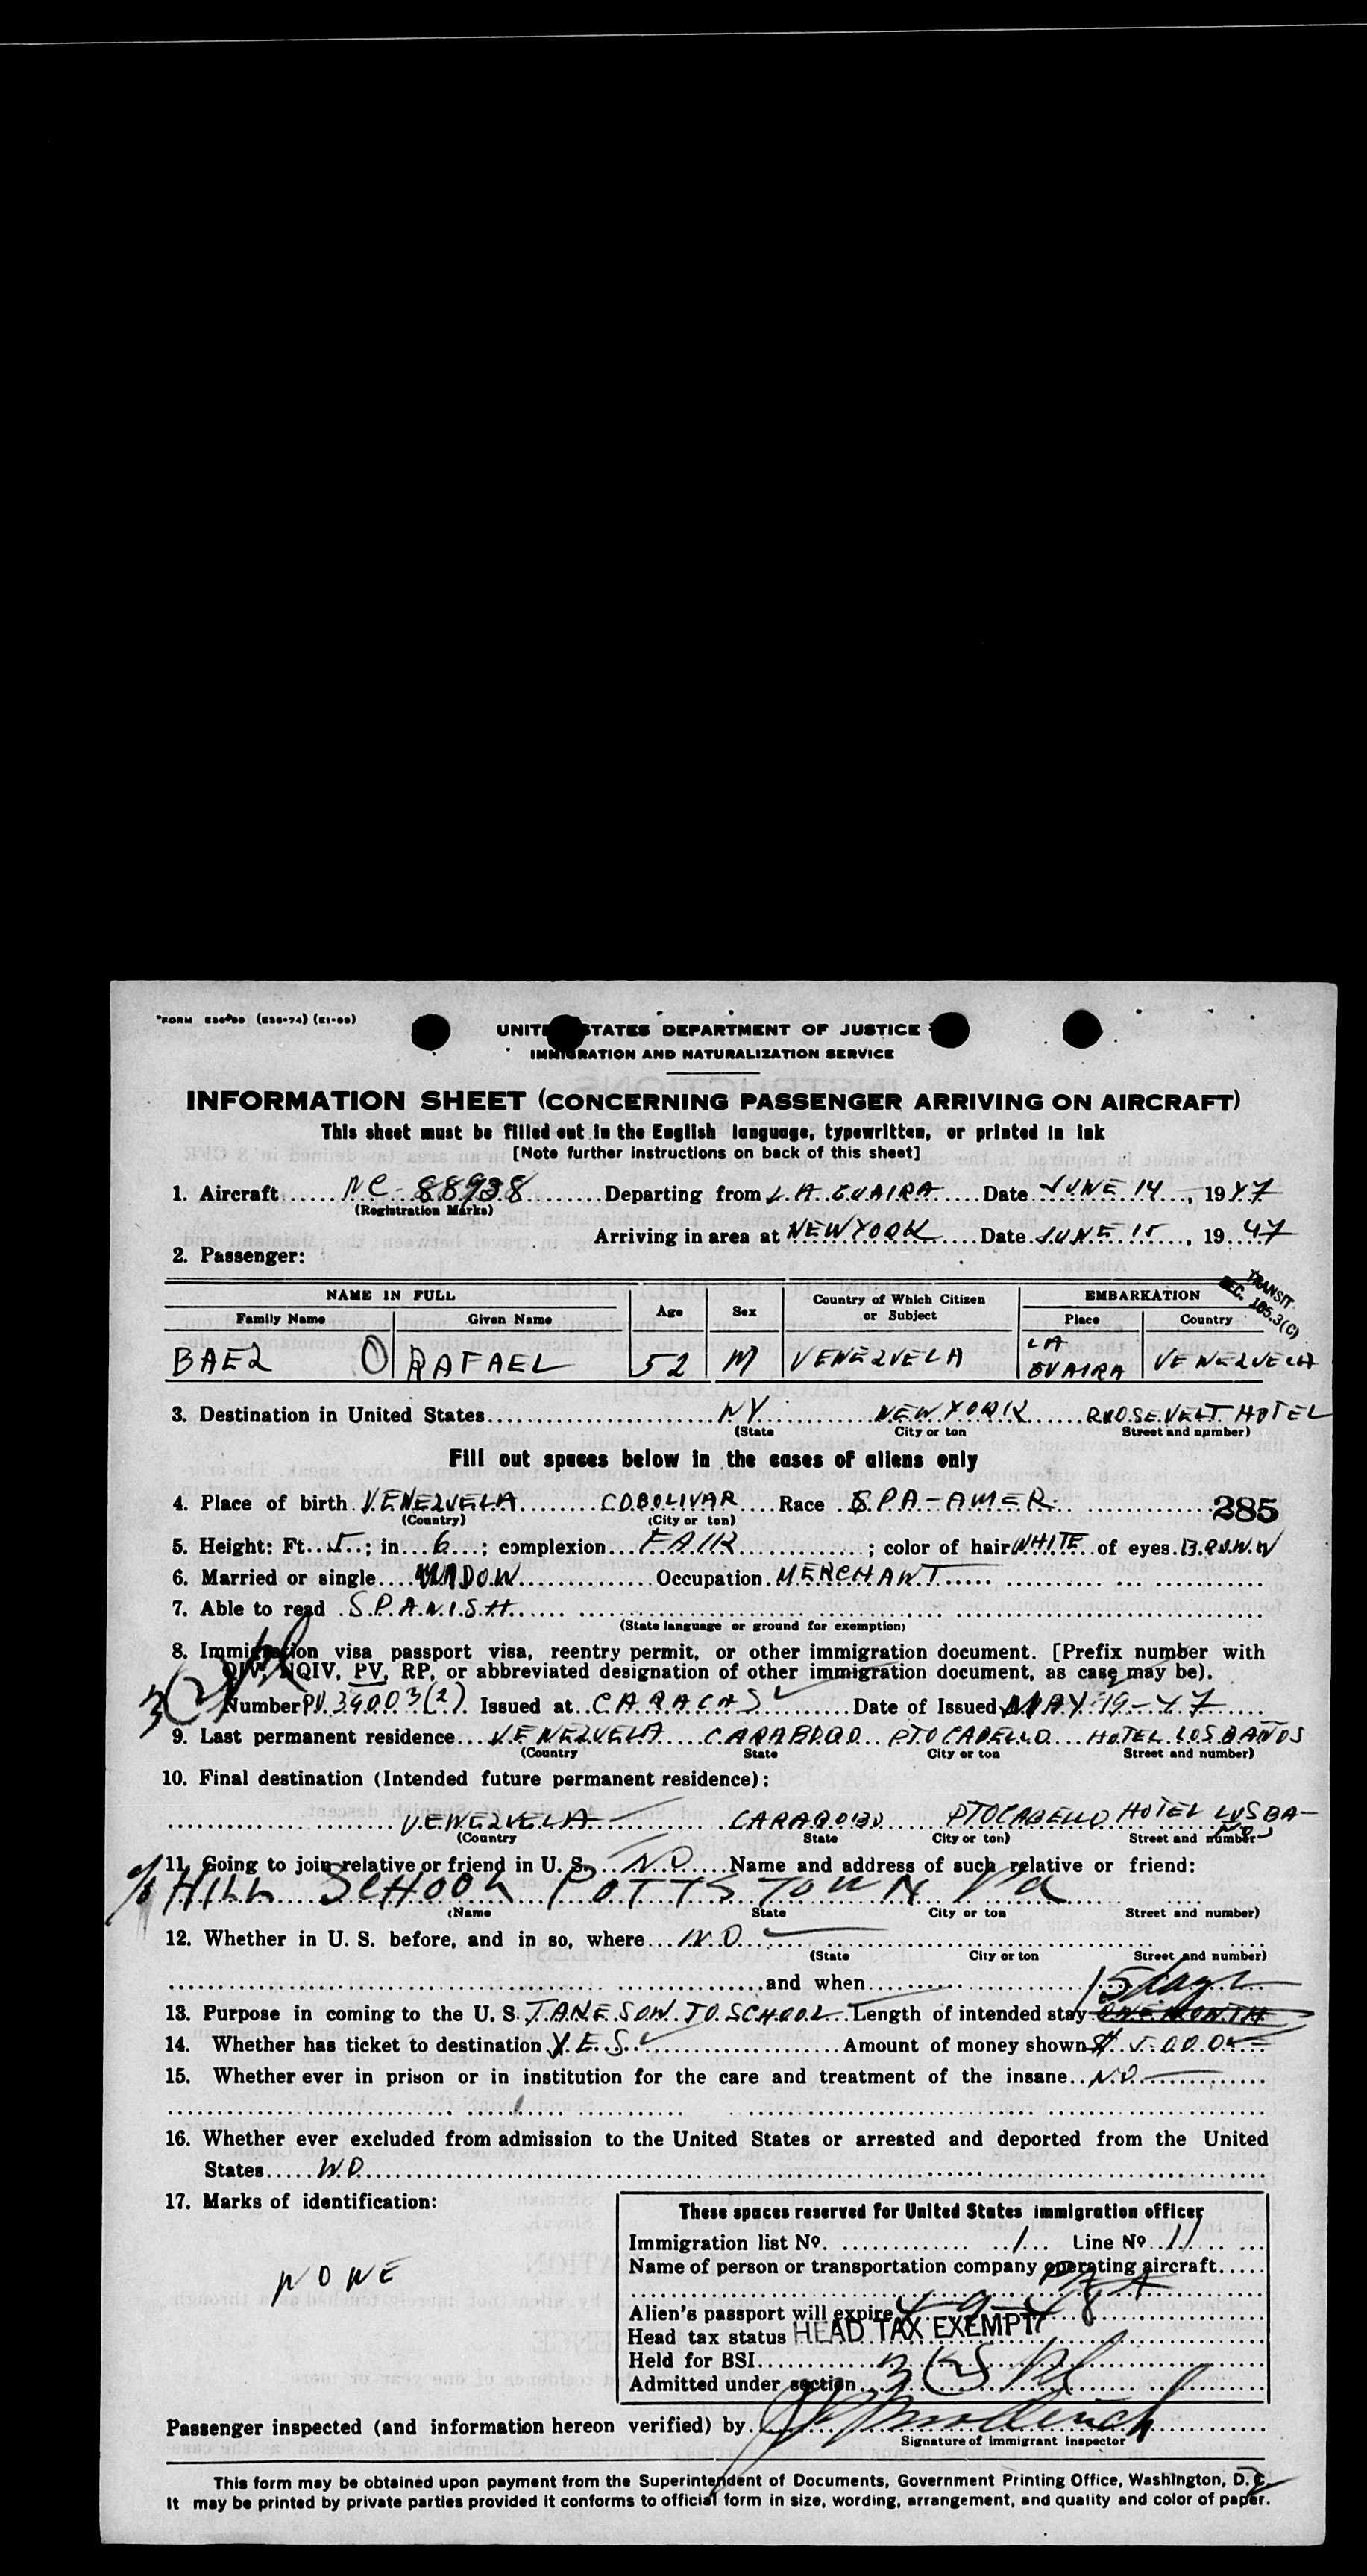 UNITED STATES DEPARTMENT OF JUSTICE
IMMIGRATION AND NATURALIZATION SERVICE
INFORMATION SHEET (CONCERNING PASSENGER ARRIVING ON AIRCRAFT)
This sheet must be filled out in the English language, typewritten, or printed in ink
[Note further instructions on back of this sheet]
1. Aircraft NC-88938 Departing from LA GUAIRA Date JUNE 14, 1947
(Registration Marks)
Arriving in area at NEW YORK Date JUNE 15, 19 47
2. Passenger:
TRANSIT
SEC. 105.3(C)
NAME IN FULL Age Sex Country of Which Citizen or Subject EMBARKATION
Family Name Given Name Place Country
BAEZ O RAFAEL 52 M VENEZUELA LA GUAIRA VENEZUELA
3. Destination in United States NY NEW YORK ROOSEVELT HOTEL
(State City or ton Street and number)
Fill out spaces below in the cases of aliens only
4. Place of birth VENEZUELA CDBOLIVAR Race SPA-AMER. 285
(Country) (City or ton)
5. Height: Ft. 5; in. 6; complexion FAIR; color of hair WHITE of eyes BROWN
6. Married or single WIDOW Occupation MERCHANT
7. Able to read SPANISH
(State language or ground for exemption)
8. Immigration visa passport visa, reentry permit, or other immigration document. [Prefix number with
QIV, NQIV, PV, RP, or abbreviated designation of other immigration document, as case may be).
3(2)
Number PV 34003(2) Issued at CARACAS Date of Issued MAY-19-47
9. Last permanent residence VENEZUELA CARABOBO PTO CABELLO HOTEL LOS BAÑOS
(Country State City or ton Street and number)
10. Final destination (Intended future permanent residence):
VENEZUELA CARABOBO PTOCABELLO HOTEL LOS BA-
ÑOS
(Country State City or ton) Street and number
11. Going to join relative or friend in U. S. NO Name and address of such relative or friend:
HILL SCHOOL POTTSTOWN Pa
(Name State City or ton Street and number)
12. Whether in U. S. before, and in so, where NO
(State City or ton Street and number)
and when
15 days
13. Purpose in coming to the U. S. TAKE SON TO SCHOOL Length of intended stay ONE MONTH
14. Whether has ticket to destination YES Amount of money shown $ 5.000
15. Whether ever in prison or in institution for the care and treatment of the insane NO
16. Whether ever excluded from admission to the United States or arrested and deported from the United
States NO
17. Marks of identification:
NONE
These spaces reserved for United States immigration officer
Immigration list No. 1 Line No 11
Name of person or transportation company operating aircraft
PAA
Alien's passport will expire 4-9-48
Head tax status HEAD TAX EXEMPT
Held for BSI
Admitted under section 3(2)
Passenger inspected (and information hereon verified) by
Signature of immigrant inspector
This form may be obtained upon payment from the Superintendent of Documents, Government Printing Office, Washington, D. C.
It may be printed by private parties provided it conforms to official form in size, wording, arrangement, and quality and color of paper.